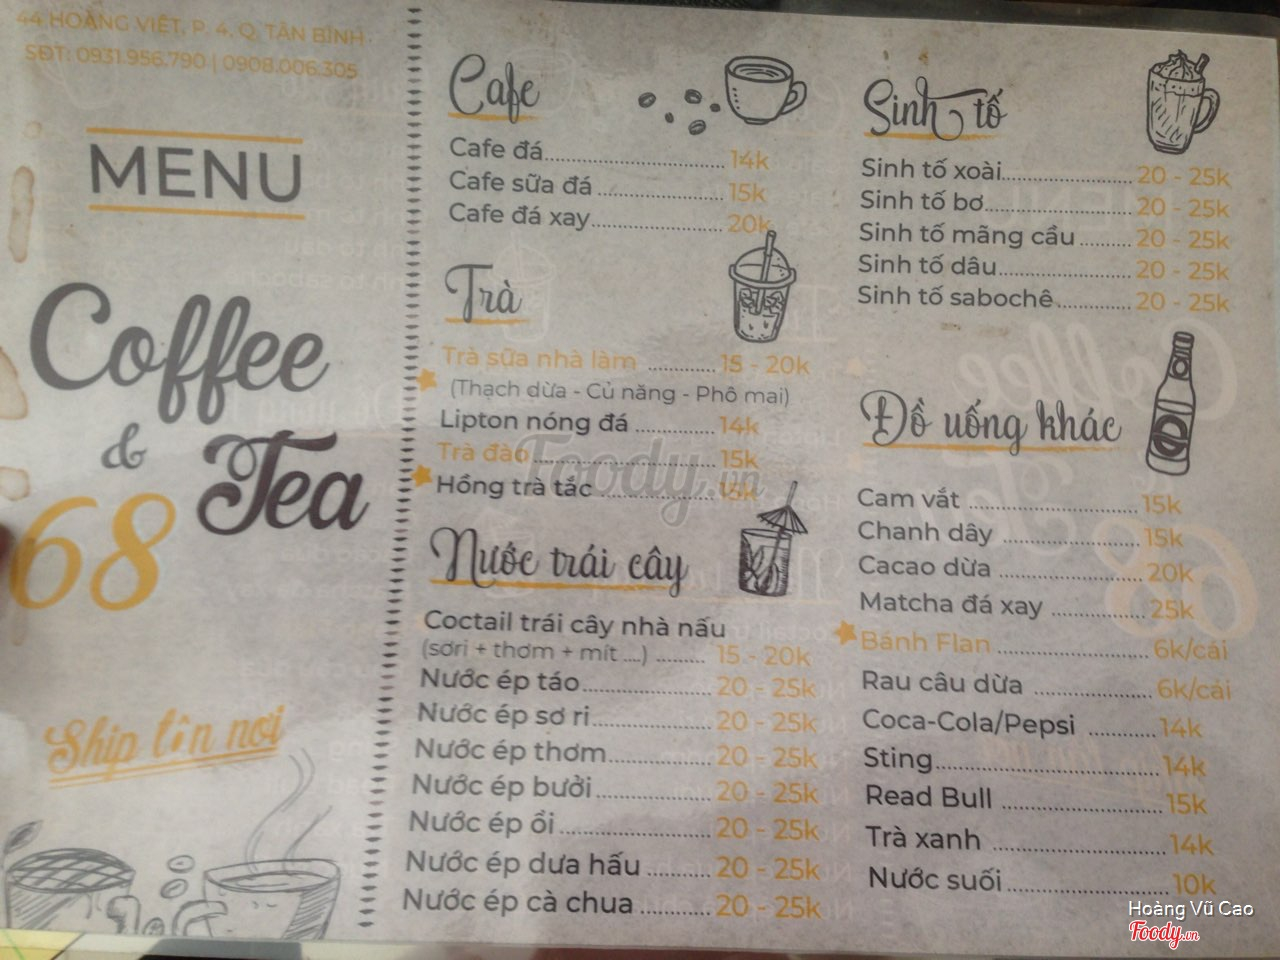 44 HOÀNG VIỆT, P. 4, Q. TÂN BÌNH
SĐT: 0931.956.790 | 0908.006.305
MENU
Coffee
& Tea
68
Ship tận nơi
Cafe
Cafe đá 14k
Cafe sữa đá 15k
Cafe đá xay 20k
Trà
Trà sữa nhà làm 15 - 20k
(Thạch dừa - Củ năng - Phô mai)
Lipton nóng đá 14k
Trà đào 15k
Hồng trà tắc 15k
Nước trái cây
Coctail trái cây nhà nấu
(sơri + thơm + mít ....) 15 - 20k
Nước ép táo 20 - 25k
Nước ép sơ ri 20 - 25k
Nước ép thơm 20 - 25k
Nước ép bưởi 20 - 25k
Nước ép ổi 20 - 25k
Nước ép dưa hấu 20 - 25k
Nước ép cà chua 20 - 25k
Sinh tố
Sinh tố xoài 20 - 25k
Sinh tố bơ 20 - 25k
Sinh tố mãng cầu 20 - 25k
Sinh tố dâu 20 - 25k
Sinh tố sabochê 20 - 25k
Đồ uống khác
Cam vắt 15k
Chanh dây 15k
Cacao dừa 20k
Matcha đá xay 25k
Bánh Flan 6k/cái
Rau câu dừa 6k/cái
Coca-Cola/Pepsi 14k
Sting 14k
Read Bull 15k
Trà xanh 14k
Nước suối 10k
Foody.vn
Hoàng Vũ Cao
Foody.vn